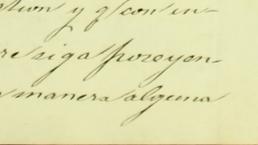 ation y q̃ con in-
re siga poseyen-
manera alguna